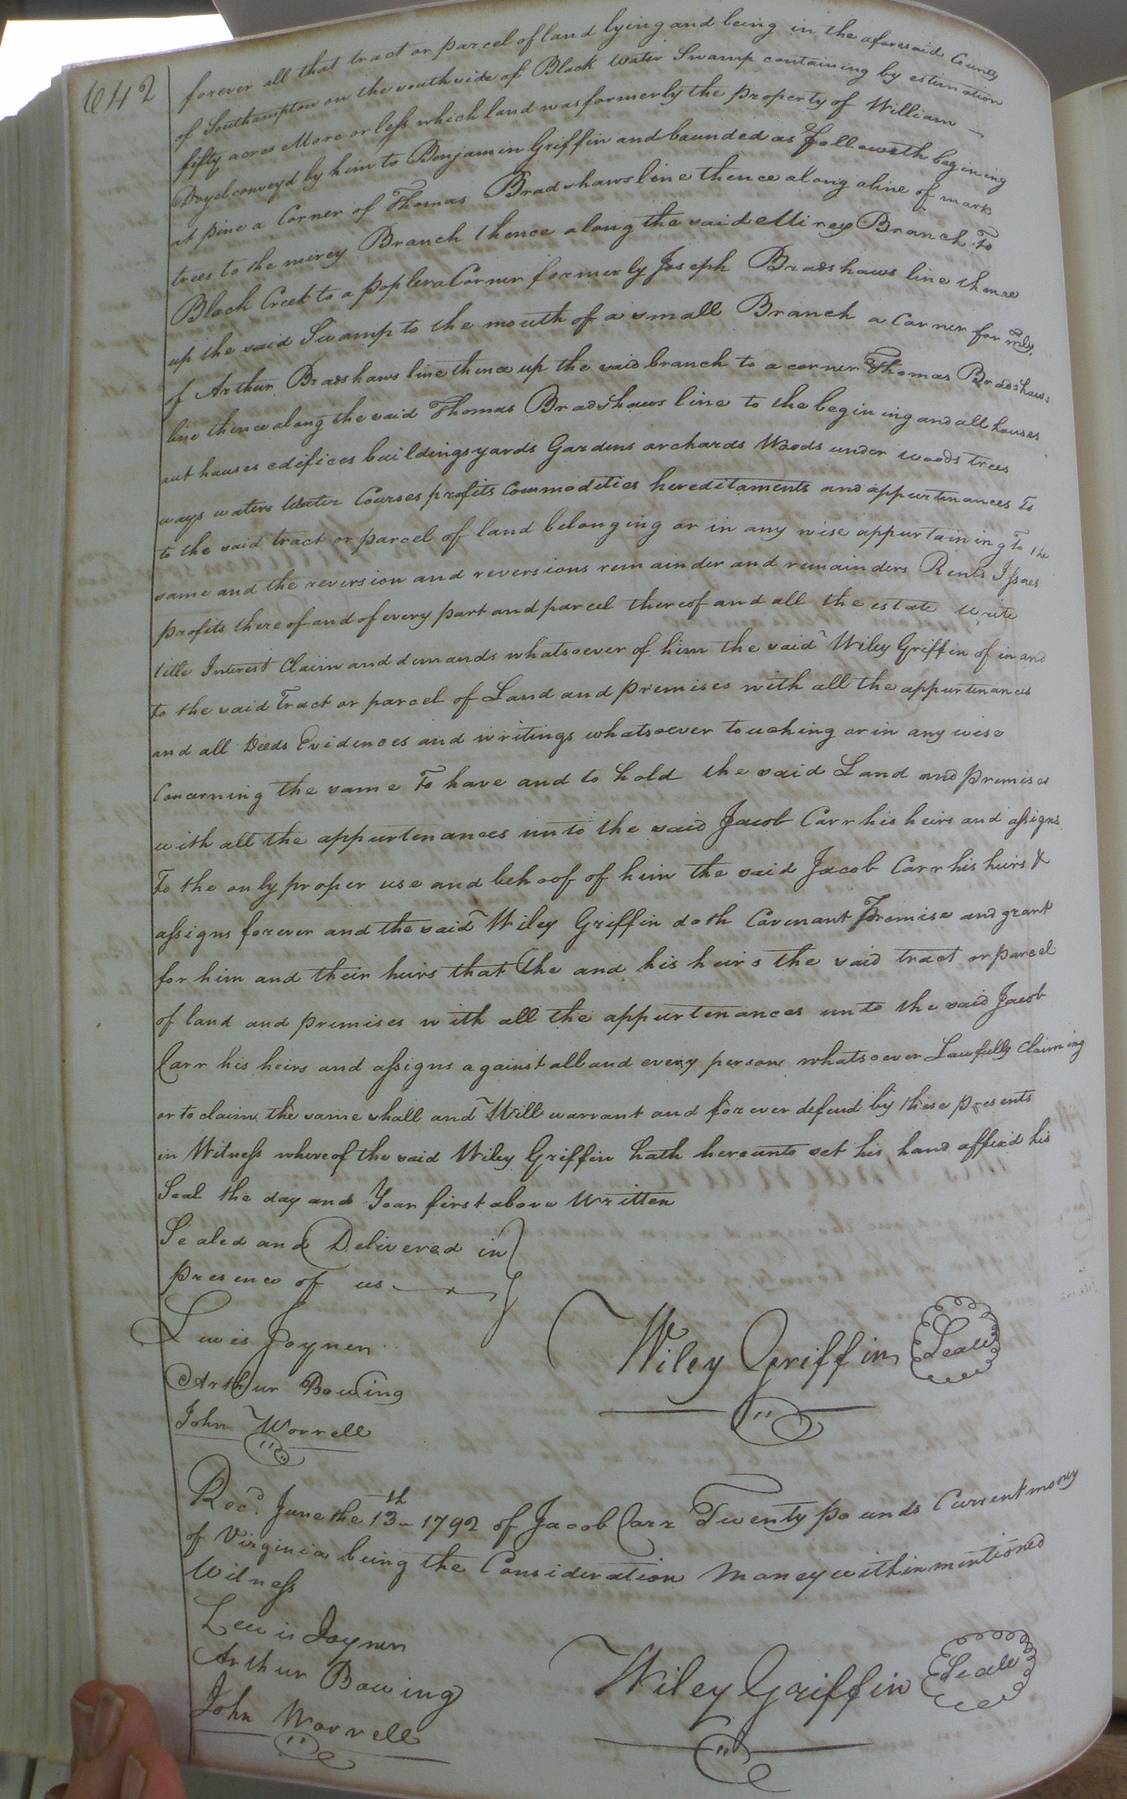 642
forever all that tract or parcel of land lying and being in the aforesaid County
of Southampton on the south side of Black Water Swamp containing by estimation
fifty acres More or less which land was formerly the property of William
Doyel conveyd by him to Benjamin Griffin and baunded as followeth begining
at pine a Corner of Thomas Bradshaws line thence along a line of mark
trees to the mirey Branch thence along the said Mirey Branch to
Black Creek to a poplera Corner formerly Joseph Bradshaws line thence
up the said Swamp to the mouth of a small Branch a Corner formrly
of Arthur Bradshaws line thence up the said branch to a corner Thomas Bradshaws
line thence along the said Thomas Bradshaws line to the begining and all houses
out houses edifices buildings yards Gardens orchards Woods under woods trees
ways waters Water Courses profits Commodities hereditaments and appurtenances to
to the said tract or parcel of land belonging or in any wise appurtaining to the
same and the reversion and reversions remainder and remainders Rents Issues
profits thereof and of every part and parcel thereof and all the estate
title Interest Claim and demands whatsoever of him the said Wiley Griffin of in and
to the said Tract or parcel of Land and premises with all the appurtenances
and all Deeds Evidences and writings whatsoever touching or in any wise
Concerning the same To have and to hold the said Land and premises
with all the appurtenances unto the said Jacob Carr his heirs and assigns
To the only proper use and behoof of him the said Jacob Carr his heirs &
assigns forever and the said Wiley Griffin doth Covenant Premise and grant
for him and their heirs that the and his heirs the said tract or parcel
of land and premises with all the appurtenances unto the said Jacob
Carr his heirs and assigns against all and every persons whatsoever Lawfully Claiming
or to claim the same shall and Will warrant and forever defend by these presents
in Witness whereof the said Wiley Griffin hath hereunto set his hand affixd his
Seal the day and Year first above Written
Sealed and Delivered in
presence of us
Lewis Joyner
Arthur Bowing
John Worrell
Wiley Griffin Seal
Recd. June the 13th 1792 of Jacob Carr Twenty paunds Current money
of Virginia being the Consideration Money within mentioned
Witness
Lewis Joyner
Arthur Bowing
John Worrell
Wiley Griffin Seal